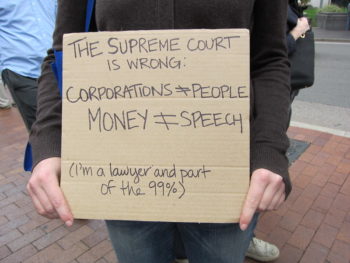 THE SUPREME COURT
IS WRONG:
CORPORATIONS ≠ PEOPLE
MONEY ≠ SPEECH
(I'm a lawyer and part
of the 99%)